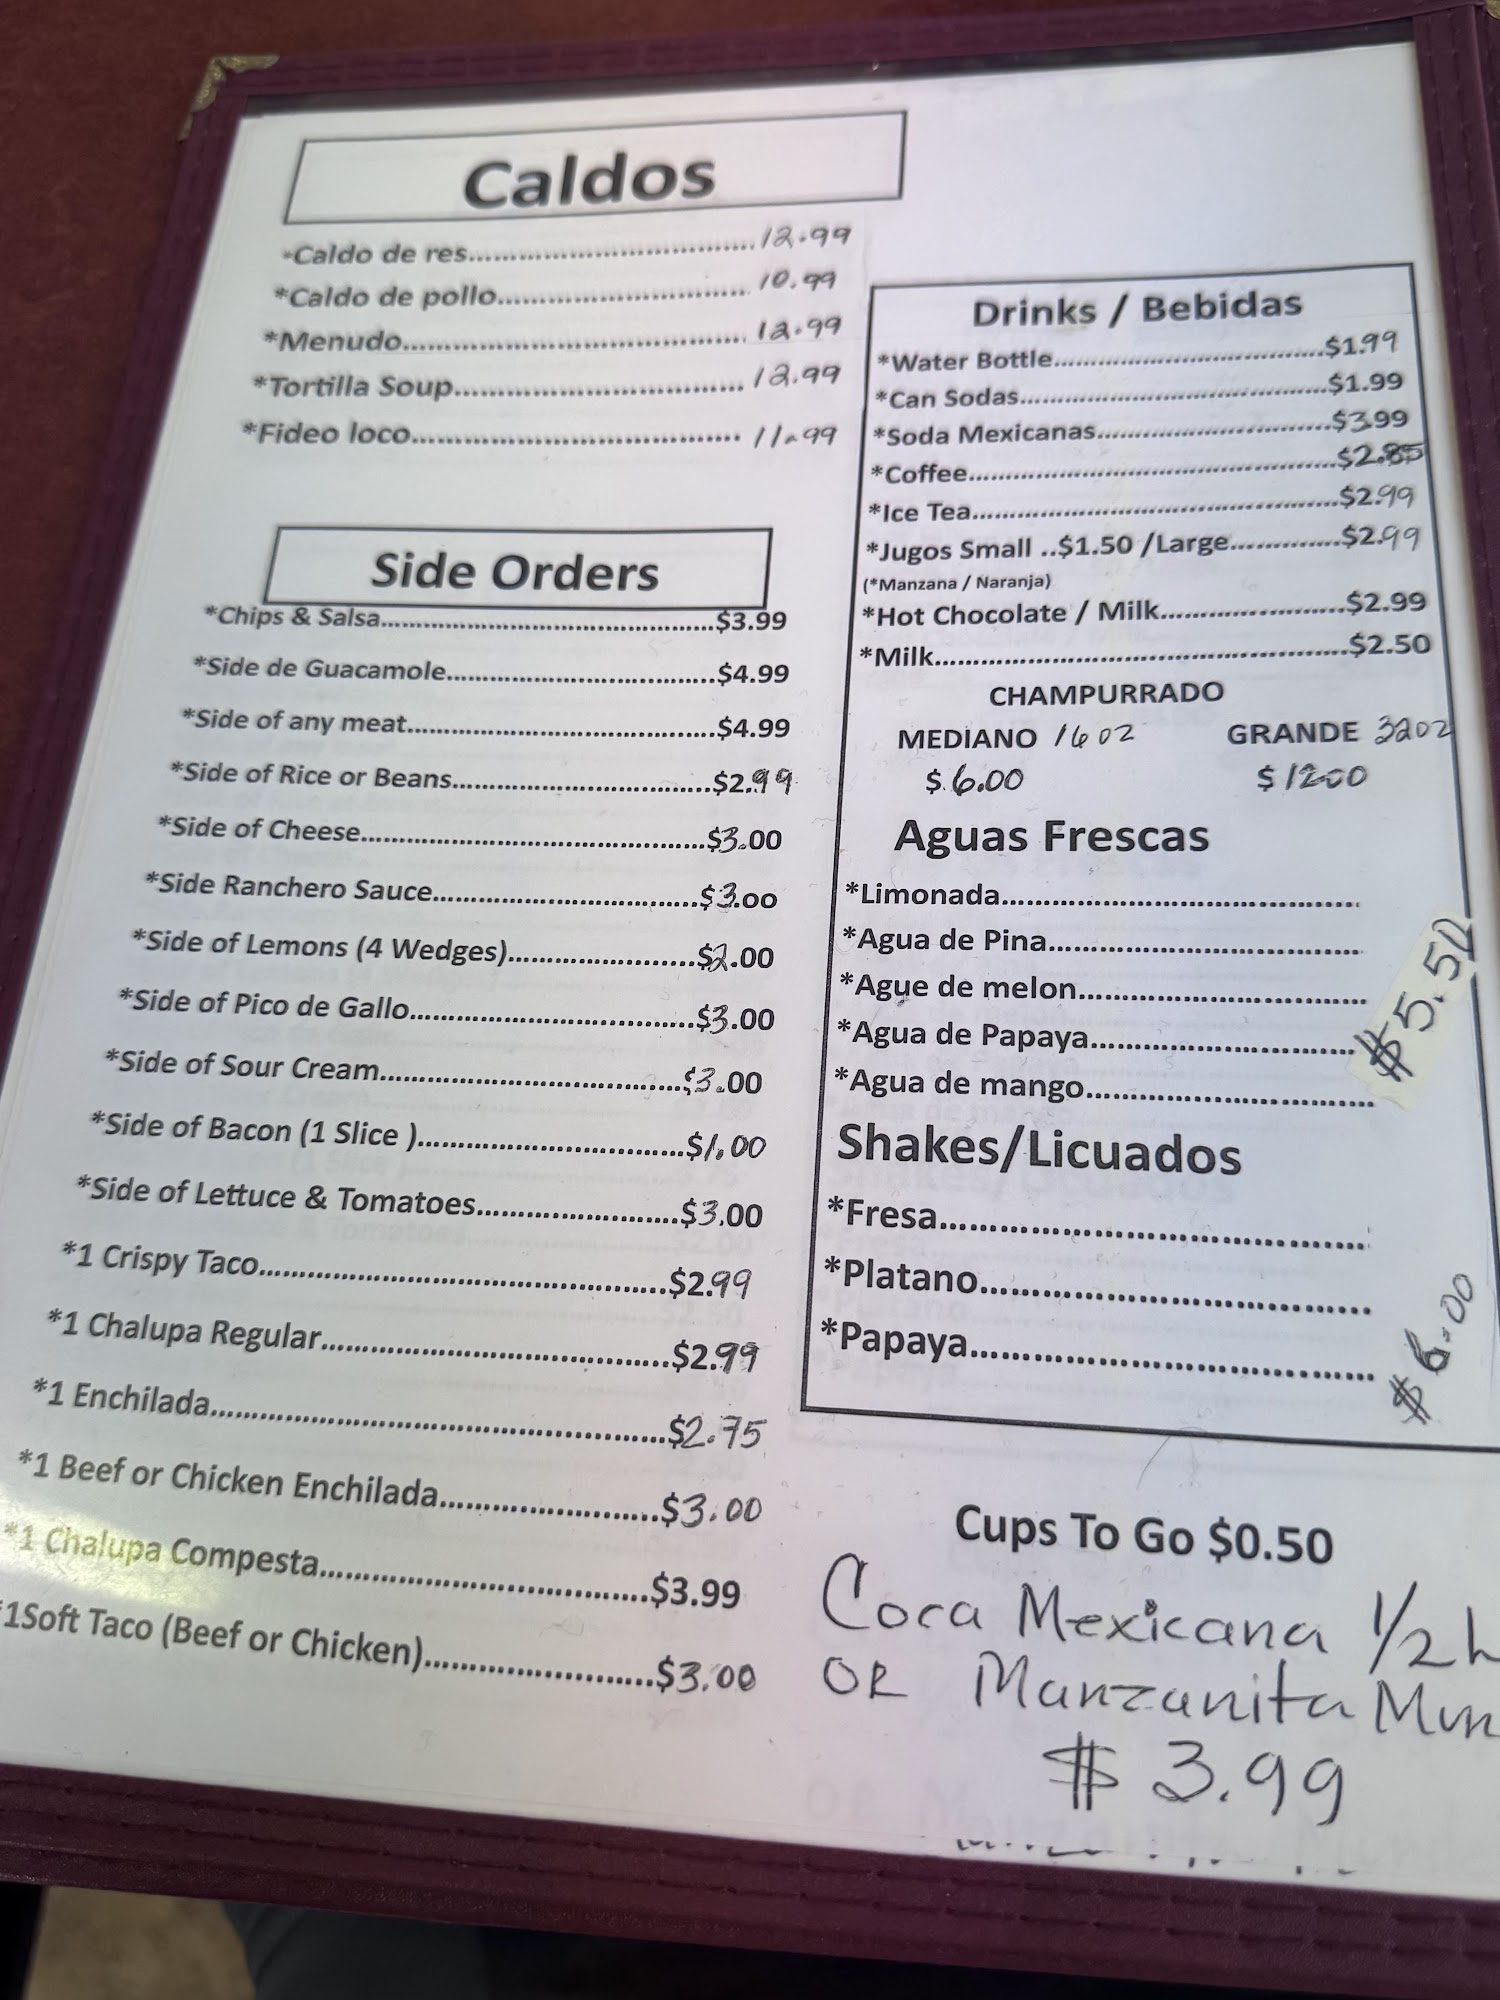 Caldos
*Caldo de res..................................12.99
*Caldo de pollo..............................10.99
*Menudo.........................................12.99
*Tortilla Soup..................................12.99
*Fideo loco......................................11.99
Side Orders
*Chips & Salsa.........................................$3.99
*Side de Guacamole.................................$4.99
*Side of any meat.....................................$4.99
*Side of Rice or Beans...............................$2.99
*Side of Cheese.........................................$3.00
*Side Ranchero Sauce...............................$3.00
*Side of Lemons (4 Wedges)......................$2.00
*Side of Pico de Gallo.................................$3.00
*Side of Sour Cream...................................$3.00
*Side of Bacon (1 Slice )..............................$1.00
*Side of Lettuce & Tomatoes.......................$3.00
*1 Crispy Taco.............................................$2.99
*1 Chalupa Regular......................................$2.99
*1 Enchilada................................................$2.75
*1 Beef or Chicken Enchilada......................$3.00
*1 Chalupa Compesta..................................$3.99
*1Soft Taco (Beef or Chicken).......................$3.00
Drinks / Bebidas
*Water Bottle.................................$1.99
*Can Sodas.....................................$1.99
*Soda Mexicanas............................$3.99
*Coffee............................................$2.85
*Ice Tea............................................$2.99
*Jugos Small ..$1.50 /Large.............$2.99
(*Manzana / Naranja)
*Hot Chocolate / Milk.....................$2.99
*Milk................................................$2.50
CHAMPURRADO
MEDIANO 16oz GRANDE 32oz
$6.00 $1200
Aguas Frescas
*Limonada...........................................
*Agua de Pina......................................
*Ague de melon...................................
*Agua de Papaya.................................
*Agua de mango..................................
$5.50
Shakes/Licuados
*Fresa..................................................
*Platano..............................................
*Papaya...............................................
$6.00
Cups To Go $0.50
Coca Mexicana 1/2 L
OR Manzanita Mun
$3.99